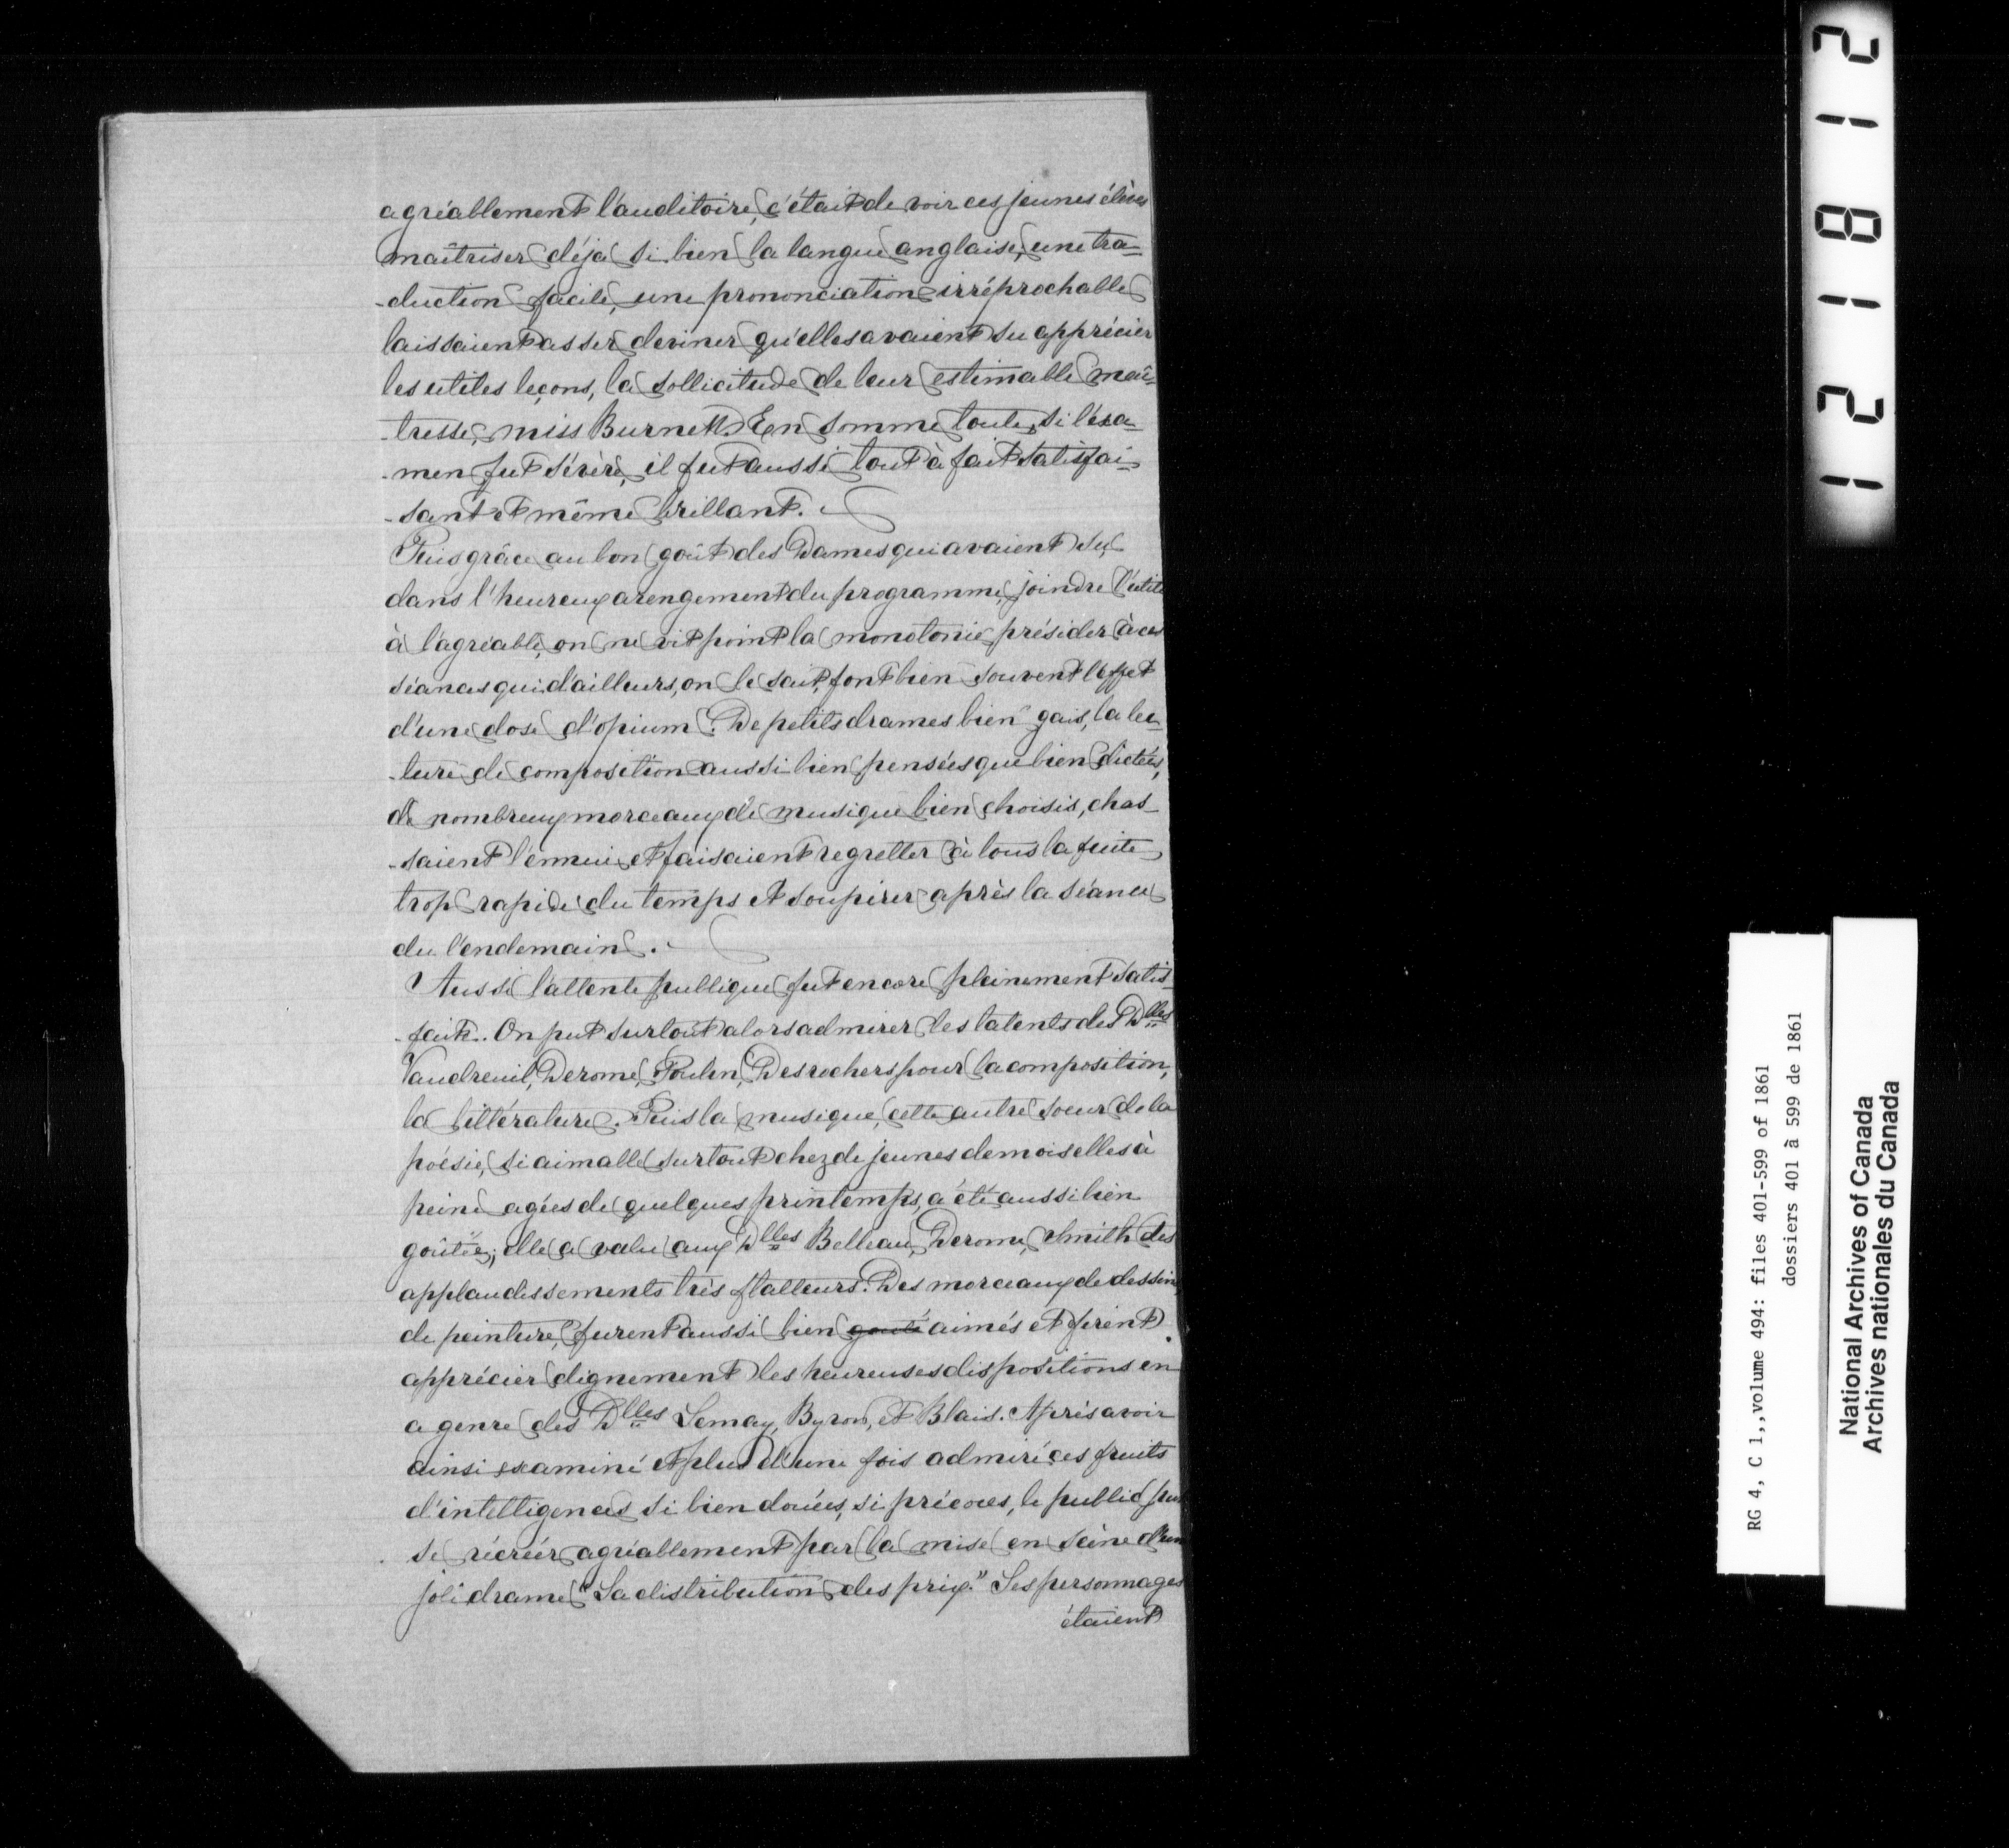 agréablement l'auditoire, c'était de voir ces jeunes élèves
maîtriser déja si bien la langue anglaise; une tra-
-duction facile, une prononciation irréprochable
laissaient asser deviner qu'elles avaient su apprécier
les utiles leçons, la sollicitude de leur estimable maî-
-tresse, miss Burnett. En somme toute, si l'exa-
-men fut sévère, il fut aussi tout à fait satisfai-
-sant et même brillant.
Puis grâce au bon goût des Dames qui avaient su,
dans l'heureux arengement du programme, joindre l'utile
à l'agréable, on ne vit point la monotonie présider à ces
séances qui d'ailleurs, on le sait, font bien souvent l'effet
d'une dose d'opium. De petits drames bien gais, la lec-
-ture de composition aussi bien pensées que bien dictées,
de nombreux morceaux de musique bien choisis, chas-
-saient l'ennui et faisaient regretter à tous la fuite
trop rapide du temps et soupirer après la séance
du l'endemain.
Aussi l'attente publique fut encore pleinement satis-
-faite. On put surtout alors admirer les talents des Dlles
Vaudreuil, Derome, Poulin, Desrochers pour la composition,
la littérature. Puis la musique, cette autre soeur de la
poésie, si aimable surtout chez de jeunes demoiselles à
peine agées de quelques printemps, a été aussi bien
goûtée; elle a valu aux Dlles Belleau, Derome, Smith des
applaudissements très flatteurs. Des morceaux de dessin,
de peinture, furent aussi bien goûté aimés et firent
apprécier dignement les heureuses dispositions en
ce genre des Dlles Lemay, Byron, et Blais. Après avoir
ainsi examiné et plus d'une fois admiré ces fruits
d'intelligences si bien douées, si précoces, le public put
se récréer agréablement par la mise en scène d'un
joli drame "La distribution des prix." Les personnages
étaient
21812
RG 4, C 1,,volume 494: files 401-599 of 1861
dossiers 401 à 599 de 1861
National Archives of Canada
Archives nationales du Canada